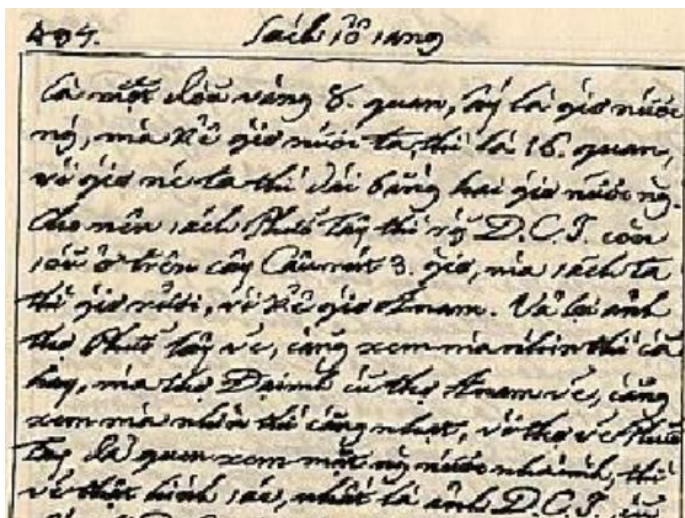 494. Sách sổ sang
là một đoũ vàng 8. quan, ấy là giờ nước
ng̃, mà kể giờ nước ta, thì là 16. quan,
vì giờ nc ta thì dài bằng hai giờ nước ng̃.
cho nên sách Phươ᷄ tây thì rằ᷄ D.C.J. còn
soũ ở trên cây Câurút 3. giờ, mà sách ta
thì giờ rưỡi, vì kể giờ Annam. Vả lại ảnh
thợ Phươ᷄ tây vẽ, càng xem mà nhìn thì cà᷄
hay, mà thợ Đạiminh cũ᷄ thợ Annam vẽ, càng
xem mà nhìn thì càng nhạt, vì thợ vẽ Phươ᷄
Tây đã quen xem mặt ng̃ nước nhà mình, thì
vẽ thật hình sác, nhất là ảnh D.C.J. cũ᷄